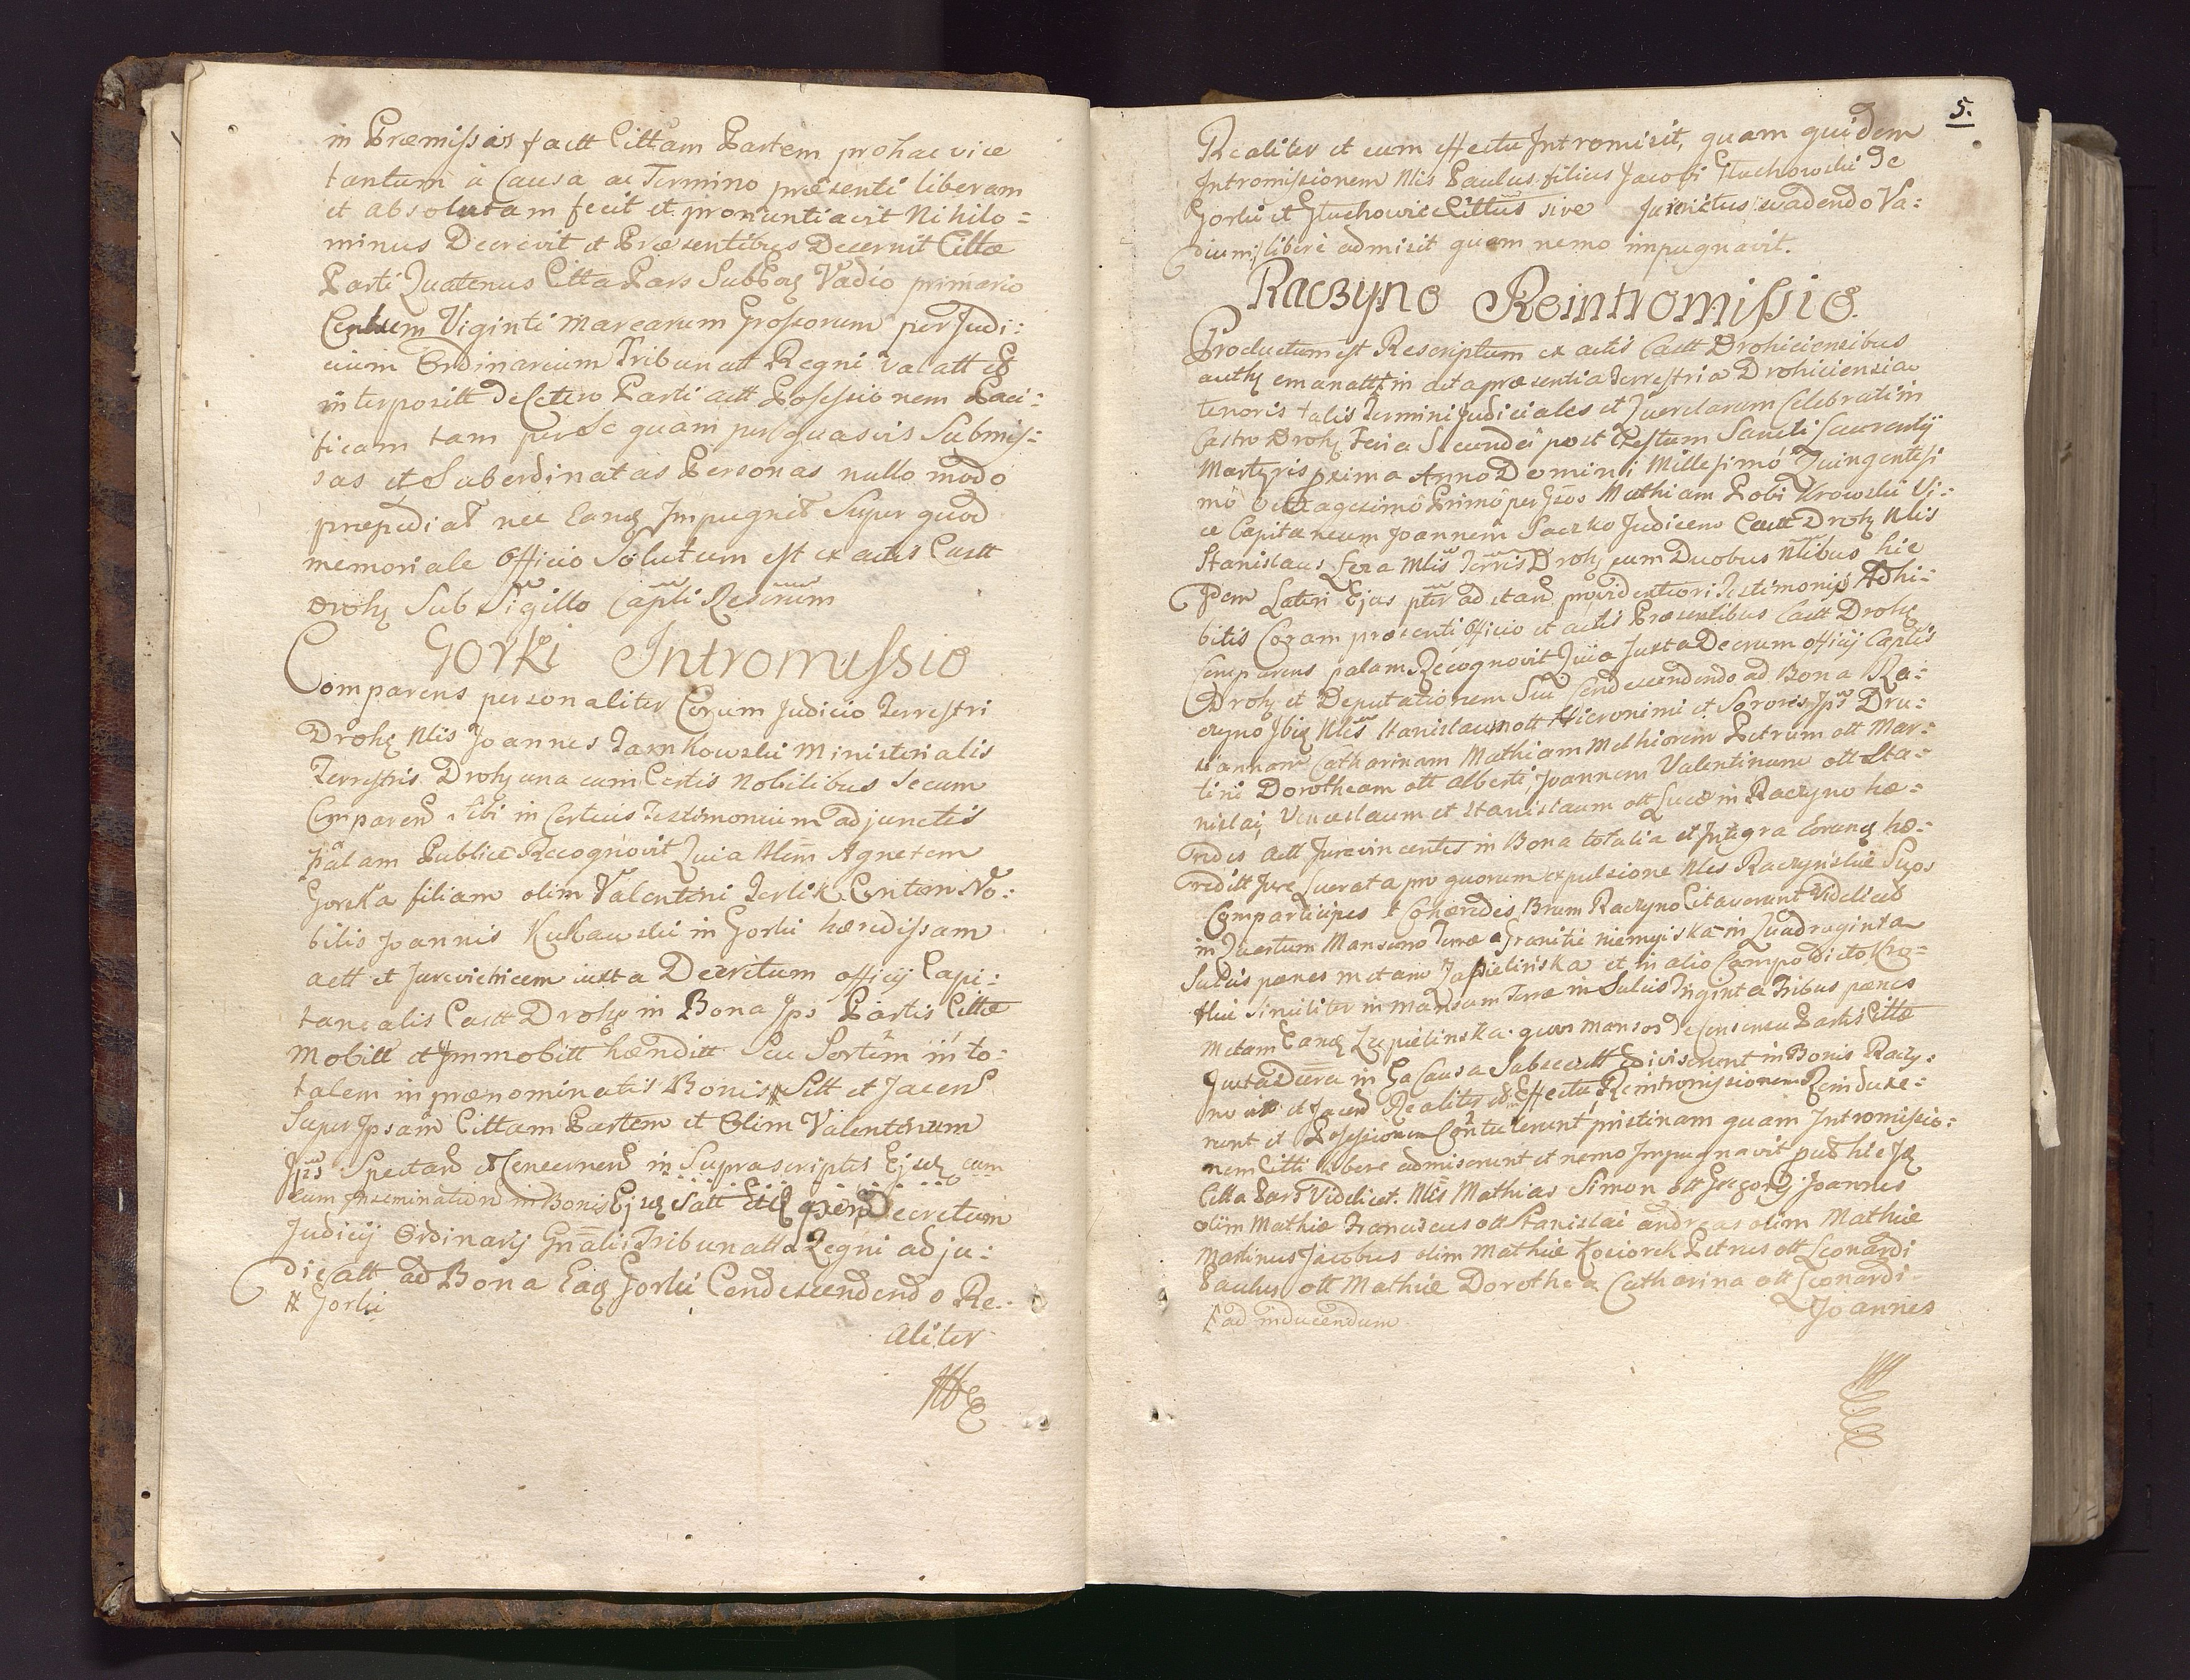 in Præmissis factt Cittam Partem pro hac vice
tantum à Causa ac Termino præsenti liberam
et absolutam fecit et pronuntiavit Nihilo=
minus Decrevit et Præsentibus Decernit Cittæ
Parti Quatenus Citta Pars Sub Vadio primario
Centum Viginti Marcarum Grossorum per Judi:
cium Ordinarium Tribunatt Regni Valatt et
interpositt de Cetero Parti actt Possessionem Paci:
ficam tam per se quam per quasvis Submis:
sas et Subordinatas Personas nullo modo
præpediat nec Impugnet Super quod
memoriale Officio Solutum est ex actis Castt
Droh Sub Sigillo
Gorki Intromissio
Comparens personaliter Coram Judicio Terrestri
Droh Nlis Joannes Jamkowski Ministerialis
Terrestris Droh una cum Certis Nobilibus Secum
Comparend Sibi in Certius Testimonium adjunctis
palam Publicè Recognovit Quia Nlem Agnetem
Gorska filiam olim Valentini Terlik No:
bilis Joannis Kukawski in Gorki hæredissam
actt et Jurevictricem iuxta Decretum officij Capi:
tanealis Castt Droh in Bona Ips Partis Cittæ
Mobitt et Immobitt hæreditt Seu Sortem in to:
talem in prænominatis Bonis # Sitt et Jacend
Super Ipsam Cittam Partem et Olim Valentinum
Spectand et Concernend in Suprascriptis cum
cum Inseminatione in Bonis Decretum
Judicij Ordinarij Gnalis Tribunatt Regni adju:
dicatt ad Bona Gorki Condescendendo Re:
# Gorki
aliter
5.
Realiter et cum effectu Intromisit, quam quidem
Intromissionem Nlis Paulus filius Jacobi Głuchowski de
Gorki et Głuchowie Cittus sive Jurevictus /evadendo Va:
dium/ liberè admisit quam nemo impugnavit.
Raczyno Reintromissio.
Productum est Rescriptum ex actis Castt Drohiciensibus
auth emanatt in acta præsentia Terrestria Drohiciensia
tenoris talis Termini Judiciales et Querelarum Celebrati in
Castro Droh Feria Secunda post Festum Sancti Laurentij
Martyris prima Anno Domini Millesimo Quingentesi
mo Octuagesimo Primo per Gsos Mathiam Vi:
ce Capitaneum Joannem Saczko Judicem Castt Droh Nlis
Stanislaus Mlis Terris Droh cum Duobus Nlibus hic
Idem Lateri Ejus ad Testimonio Adhi:
bitis Coram præsenti Officio et actis Præsentibus Castt Droh
Comparens palam Recognovit Quia Juxta Decrum officij Captis
Droh et Deputationem Sui Condescendendo ad Bona Ra:
czyno Stanislaum ott Hieronimi et Sororis Dru:
siannam Catharinam Mathiam Melhiorem Petrum ott Mar:
tini Dorotheam ott Alberti Joannem Valentinum ott Sta:
nislai, Venceslaum et Stanislaum ott Lucæ in Raczyno hæ:
redes actt Jurevincentes in Bona totalia et Integra hæ:
reditt Jure pro quorum expulsione Nles Raczyńskie Suos
Comparticipes et Cohæredes Raczyno Citaverunt Videlicet
in Quartum Mansum Terræ a Granitie in Quadraginta
Sulcis pænes metam et in alio Campo Dicto
similiter in mansum Terræ in Sulcis Triginta Tribus pænes
metam quos mansos de Consensu Partis Cittæ
Juxta Decra in Ea Causa Subsecutt diviserunt in Bonis Raczy:
no et Jacend Realiter et Effectu Reintromissionem Reinduxe:
runt et Possessionem Contulerunt pristinam quam Intromissio:
nem Citti libere admiserunt et nemo Impugnavit
Citta Pars Videlicet. Nlis Mathias Simon ott Gregorij Joannes
olim Mathiæ Franciscus ott Stanislai Andreas olim Mathiæ
Martinus Jacobus olim Mathiæ Kosiorek Petrus ott Leonardi
Paulus ott Mathiæ Dorothea Catharina ott Leonardi
Joannes
ad inducendum